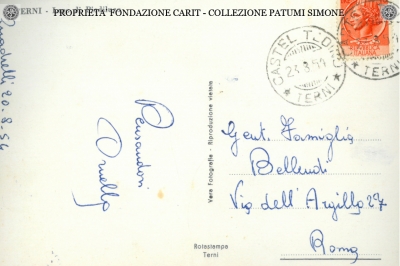 PROPRIETA' FONDAZIONE CARIT - COLLEZIONE PATUMI SIMONE
TERNI -
CASTEL TODINO
24.8.54
TERNI
TERNI
20-8-54
Pensandovi
Ornella
Vera Fotografia - Riproduzione vietata
Gent. Famiglia
Bellendi
Via dell'Argilla 27
Roma
Rotostampa
Terni